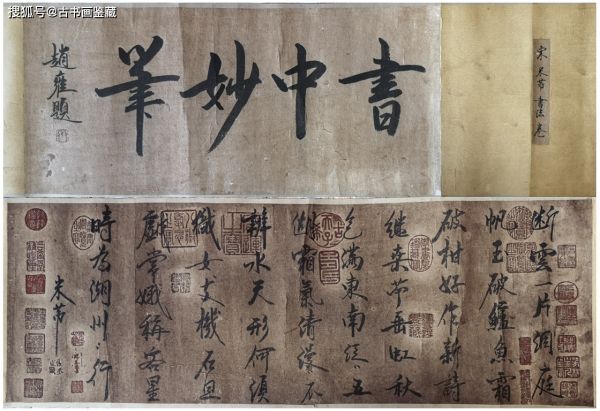 搜狐号@古书画鉴藏
書中妙筆
趙雍題
宋米芾書法卷
断雲一片洞庭
帆玉破鱸魚霜
破柑好作新詩
继桒苧垂虹秋
色滿東南泛〻五
湖霜氣清漫不
辨水天形何須
織女支機石且
戲常娥稱客星
時為湖州之行
米芾